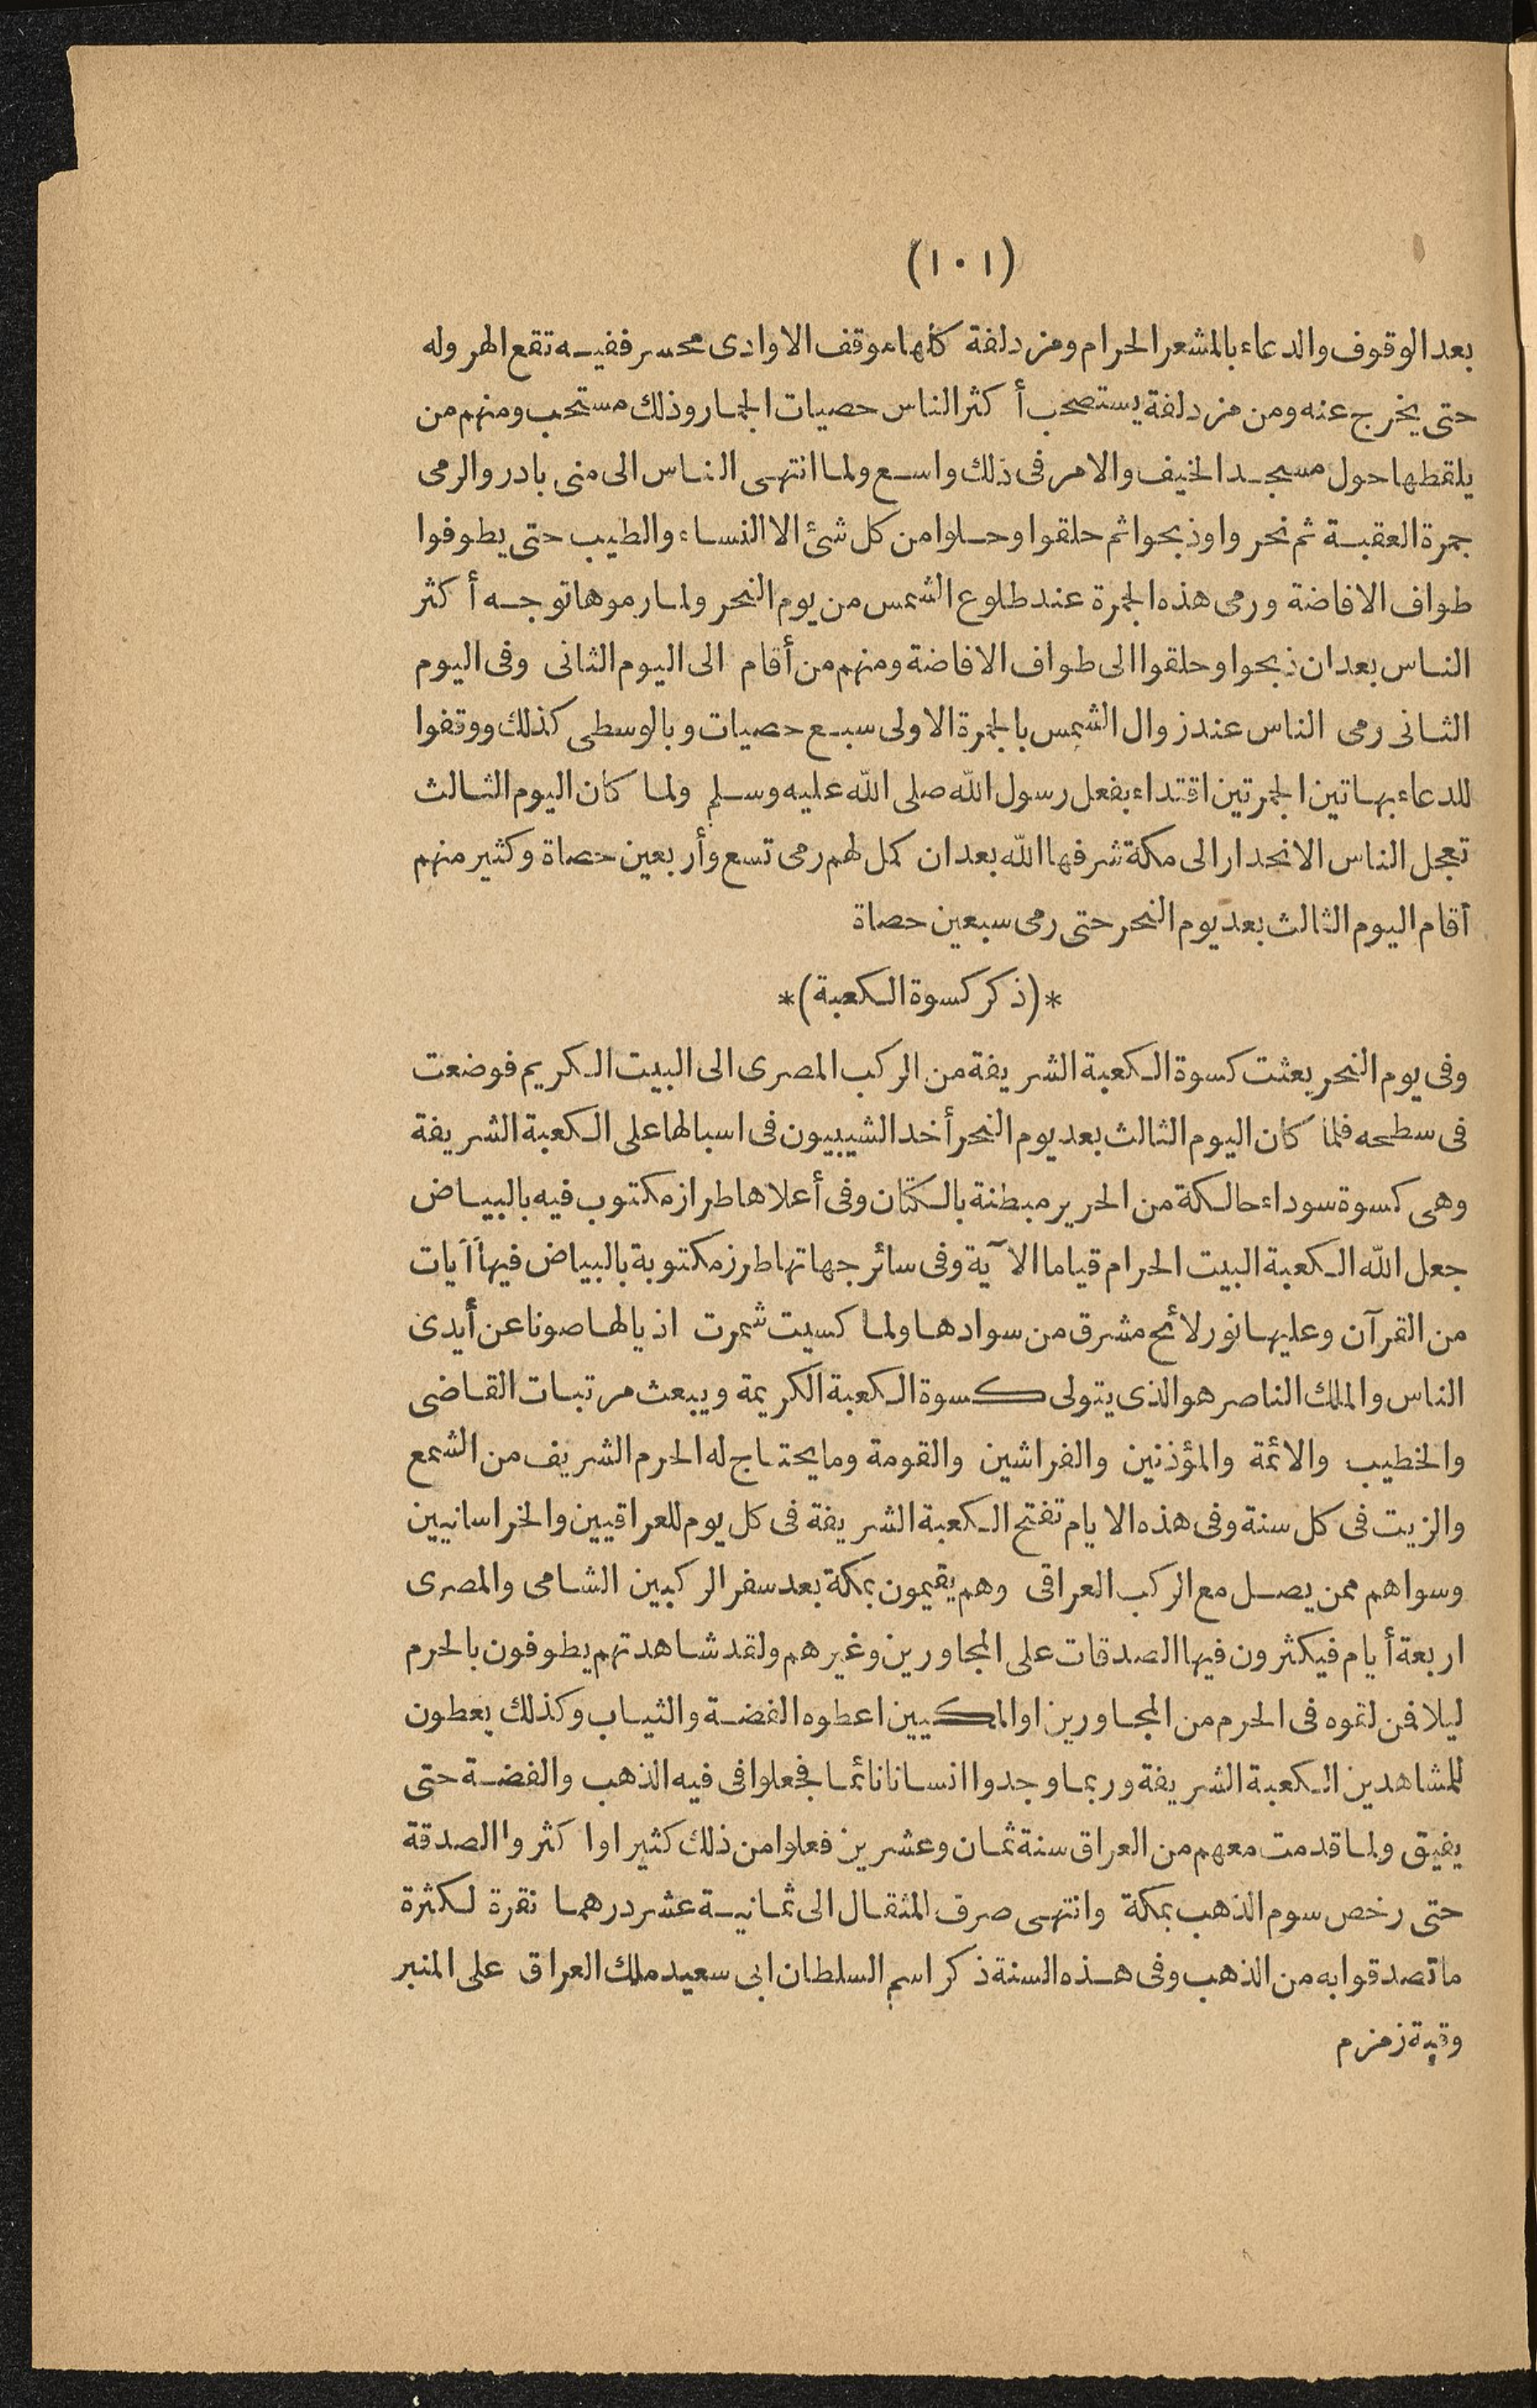 (١٠١)
بعد الوقوف والدعاء بالمشعر الحرام ومزدلفة كلها موقف الا وادى محسر ففيه تقع الهروله
حتى يخرج عنه ومن مزدلفة يستصحب أكثر الناس حصيات الجمار وذلك مستحب ومنهم من
يلقطها حول مسجد الخيف والامر فى ذلك واسع ولما انتهى الناس الى منى بادروا لرمى
جمرة العقبة ثم نحروا وذبحوا ثم حلقوا وحلوا من كل شئ الا النساء والطيب حتى يطوفوا
طواف الافاضة ورمى هذه الجمرة عند طلوع الشمس من يوم النحر ولما رموها توجه أكثر
الناس بعد ان ذبحوا وحلقوا الى طواف الافاضة ومنهم من أقام الى اليوم الثانى وفى اليوم
الثانى رمى الناس عند زوال الشمس بالجمرة الاولى سبع حصيات وبالوسطى كذلك ووقفوا
للدعاء بهاتين الجمرتين اقتداء بفعل رسول الله صلى الله عليه وسلم ولما كان اليوم الثالث
تعجل الناس الانحدار الى مكة شرفها الله بعد ان كمل لهم رمى تسع وأربعين حصاة وكثير منهم
أقام اليوم الثالث بعد يوم النحر حتى رمى سبعين حصاة
*(ذكر كسوة الكعبة)*
وفى يوم النحر بعثت كسوة الكعبة الشريفة من الركب المصرى الى البيت الكريم فوضعت
فى سطحه فلما كان اليوم الثالث بعد يوم النحر أخد الشيبيون فى اسبالها على الكعبة الشريفة
وهى كسوة سوداء حالكة من الحرير مبطنة بالكتان وفى أعلاها طراز مكتوب فيه بالبياض
جعل الله الكعبة البيت الحرام قياما الآية وفى سائر جهاتها طرز مكتوبة بالبياض فيها آيات
من القرآن وعليها نور لائح مشرق من سوادها ولما كسيت شمرت اذيالها صونا عن أيدى
الناس والملك الناصر هو الذى يتولى كسوة الكعبة الكريمة ويبعث مرتبات القاضى
والخطيب والائمة والمؤذنين والفراشين والقومة وما يحتاج له الحرم الشريف من الشمع
والزيت فى كل سنة وفى هذه الايام تفتح الكعبة الشريفة فى كل يوم للعراقيين والخراسانيين
وسواهم ممن يصل مع الركب العراقى وهم يقيمون بمكة بعد سفر الركبين الشامى والمصرى
اربعة أيام فيكثرون فيها الصدقات على المجاورين وغيرهم ولقد شاهدتهم يطوفون بالحرم
ليلا فمن لقوه فى الحرم من المجاورين او المكيين اعطوه الفضة والثياب وكذلك يعطون
للمشاهدين الكعبة الشريفة وربما وجدوا انسانا نائما فجعلوا فى فيه الذهب والفضة حتى
يفيق ولما قدمت معهم من العراق سنة ثمان وعشرين فعلوا من ذلك كثيرا واكثروا الصدقة
حتى رخص سوم الذهب بمكة وانتهى صرف المثقال الى ثمانية عشر درهما نقرة لكثرة
ما تصدقوا به من الذهب وفى هذه السنة ذكر اسم السلطان ابى سعيد ملك العراق على المنبر
وقبة زمزم